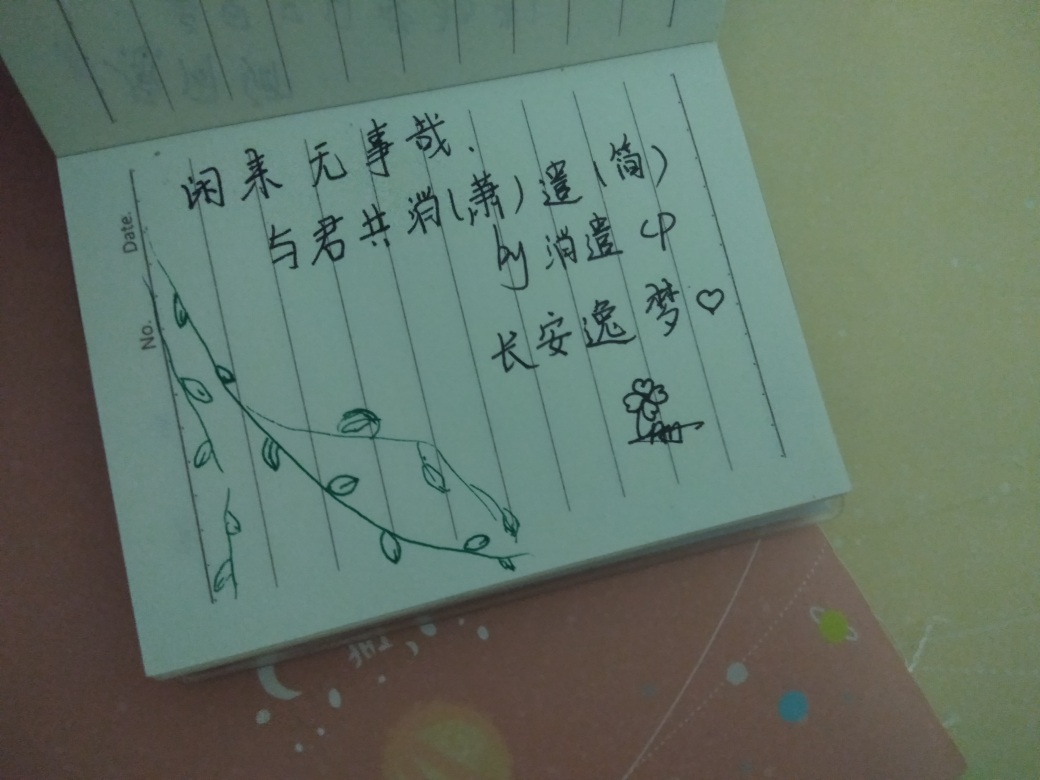 闲来无事哉、
与君共消(萧)遣(简)
by 消遣中
长安逸梦♡
Date.
No.